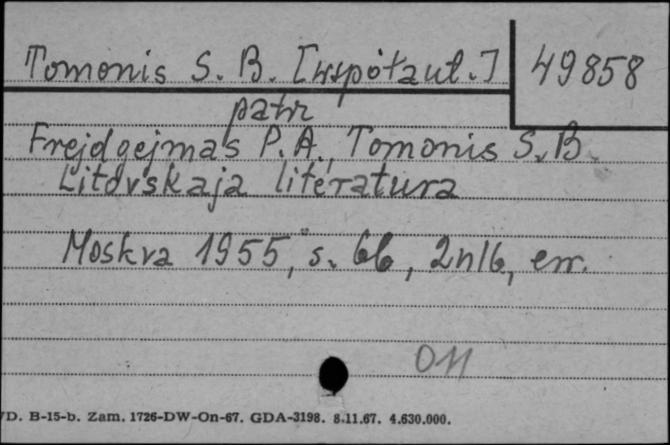 Tomonis S. B. [współaut.] 49858
patrz
Frejdgejmas P. A., Tomonis S. B.
Litovskaja literatura
Moskva 1955, s. 66, 2nlb, err.
011
VD. B-15-b. Zam. 1726-DW-On-67. GDA-3198. 8.11.67. 4.630.000.